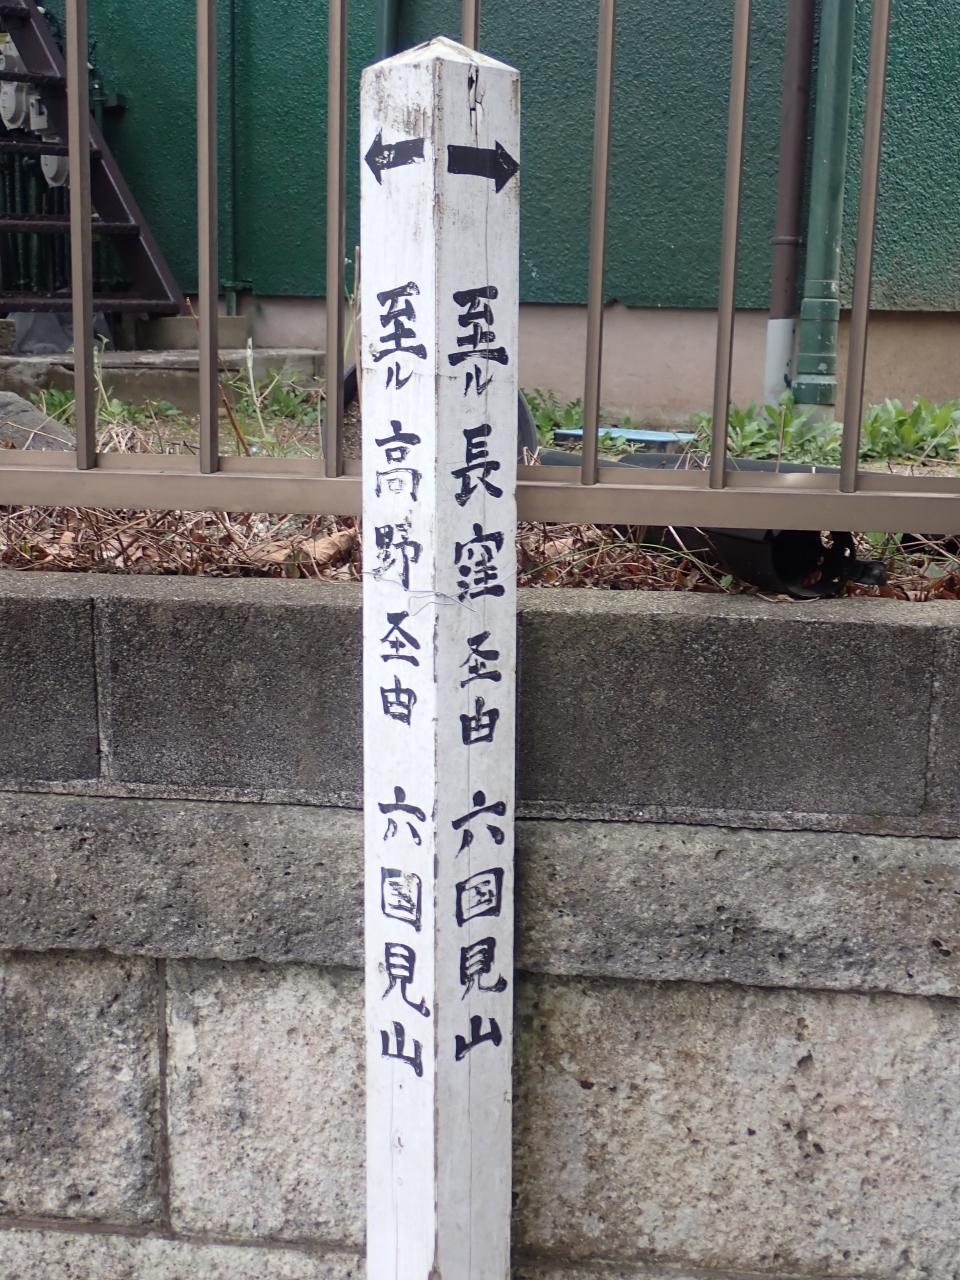 至ル 長窪圣由 六国見山
至ル 高野圣由 六国見山